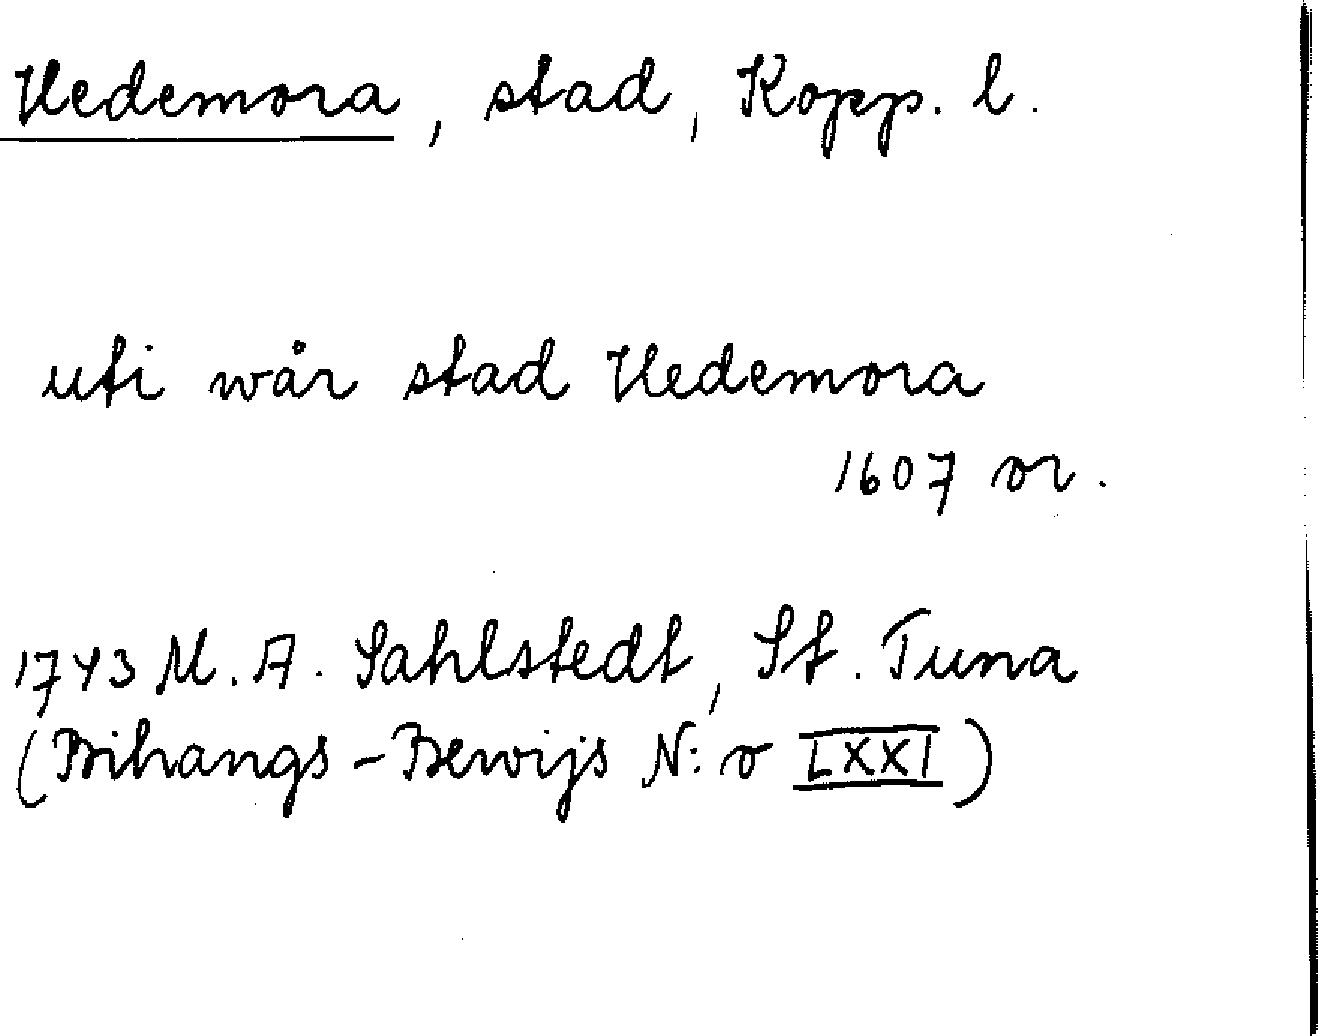 Hedemora, stad, Kopp. l.
uti wår stad Hedemora
1607 or.
1743 M. A. Sahlstedt, St. Tuna
(Bihangs-Bewijs N:o LXXI)